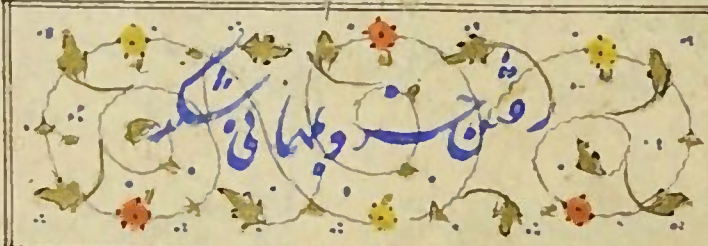 رفتن خسرو بمهمانی شکر